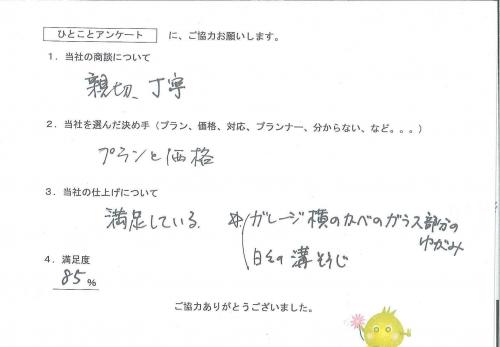 ひとことアンケート に、ご協力お願いします。
1．当社の商談について
親切、丁寧
2．当社を選んだ決め手（プラン、価格、対応、プランナー、分からない、など。。。）
プランと価格
3．当社の仕上げについて
満足している。
ガレージ横のかべのガラス部分の
ゆがみ
日々の溝そうじ
4．満足度
85％
ご協力ありがとうございました。